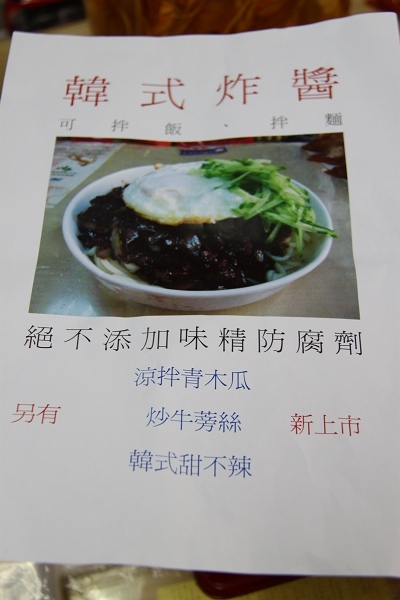 韓式炸醬
可拌飯、拌麵
絕不添加味精防腐劑
涼拌青木瓜
另有 炒牛蒡絲 新上市
韓式甜不辣